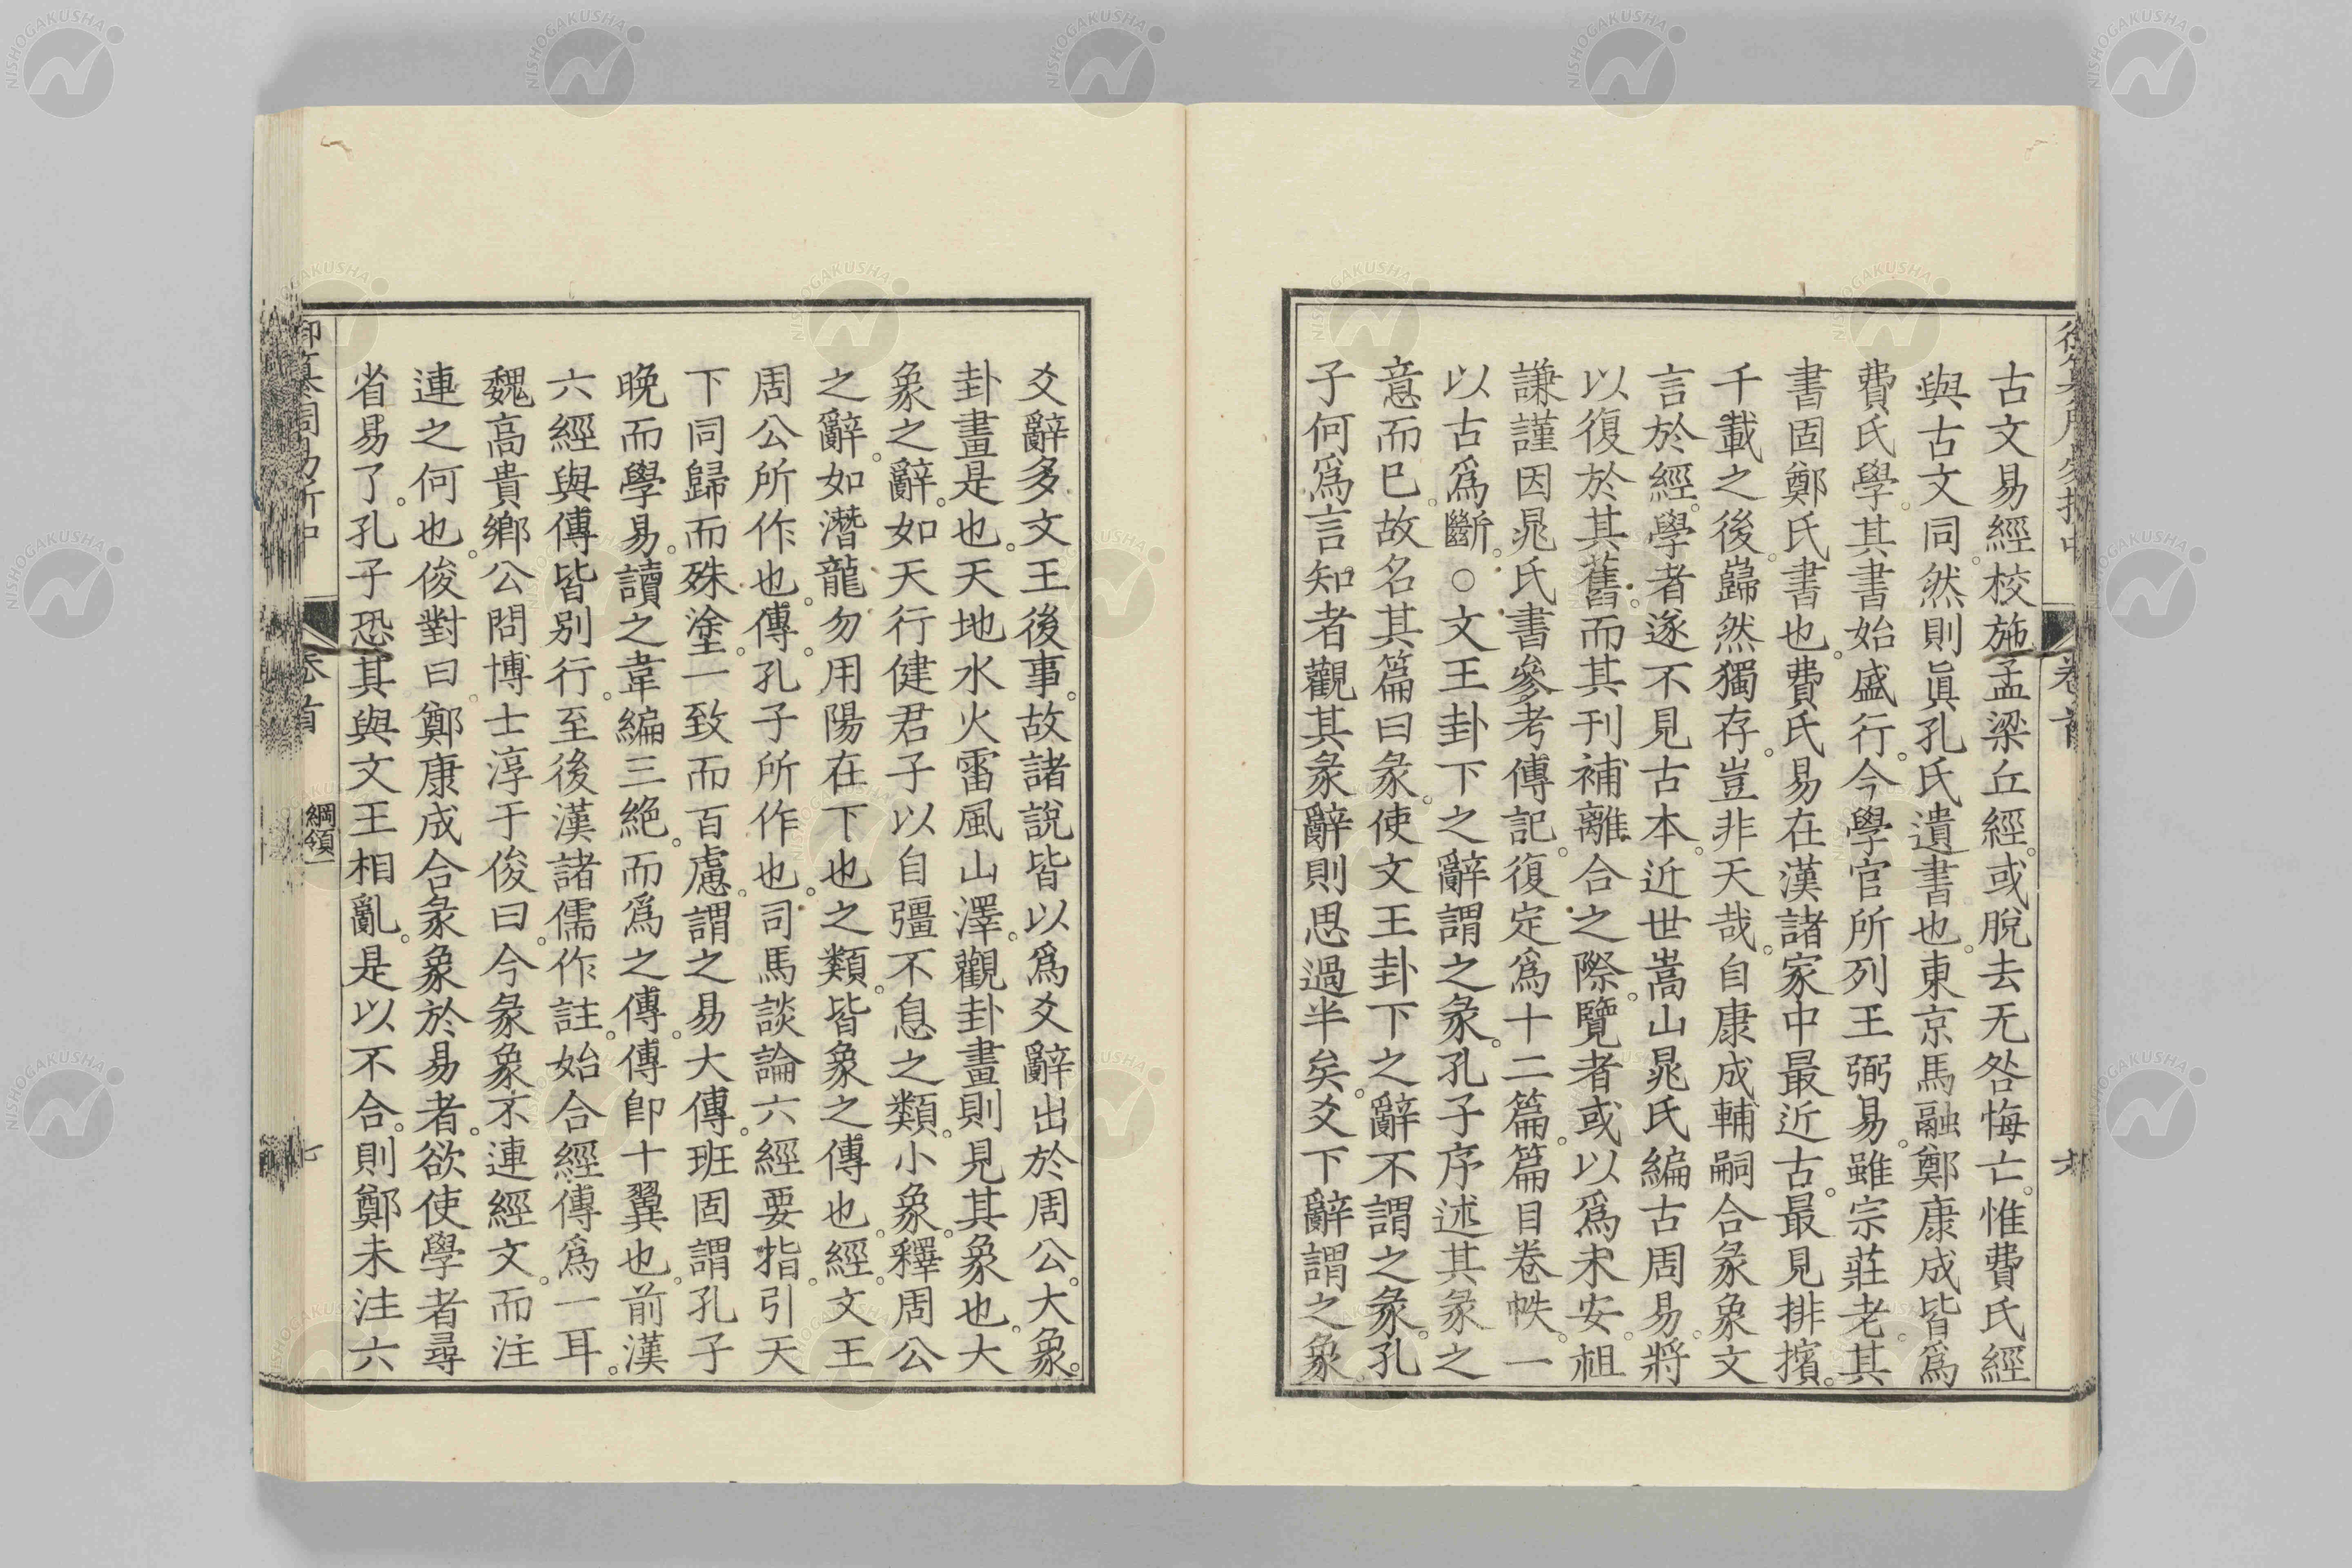 古文易經校施孟梁丘經。或脫去无咎悔亡。惟費氏經
與古文同。然則眞孔氏遺書也。東京馬融鄭康成皆爲
費氏學。其書始盛行。今學官所列王弼易。雖宗莊老。其
書固鄭氏書也。費氏易在漢諸家中最近古。最見排擯。
千載之後。巋然獨存。豈非天哉。自康成輔嗣合彖象文
言於經。學者遂不見古本。近世嵩山晁氏編古周易。將
以復於其舊。而其刊補離合之際。覽者或以爲未安。祖
謙謹因晁氏書參考傳記。復定爲十二篇。篇目卷帙。一
以古爲斷。○文王卦下之辭謂之彖。孔子序述其彖之
意而已。故名其篇曰彖。使文王卦下之辭不謂之彖。孔
子何爲言知者觀其彖辭則思過半矣。爻下辭謂之象。
卷首
爻辭多文王後事。故諸說皆以爲爻辭出於周公。大象。
卦畫是也。天地水火雷風山澤。觀卦畫則見其象也。大
象之辭。如天行健君子以自彊不息之類。小象。釋周公
之辭。如潛龍勿用陽在下也之類。皆象之傳也。經。文王
周公所作也。傳。孔子所作也。司馬談論六經要指。引天
下同歸而殊塗。一致而百慮。謂之易大傳。班固謂孔子
晚而學易。讀之韋編三絕。而爲之傳。傳卽十翼也。前漢
六經與傳皆別行。至後漢諸儒作註。始合經傳爲一耳。
魏高貴鄉公問博士淳于俊曰。今彖象不連經文。而注
連之何也。俊對曰。鄭康成合彖象於易者。欲使學者尋
省易了。孔子恐其與文王相亂。是以不合。則鄭未注六
卷首
綱領一
七